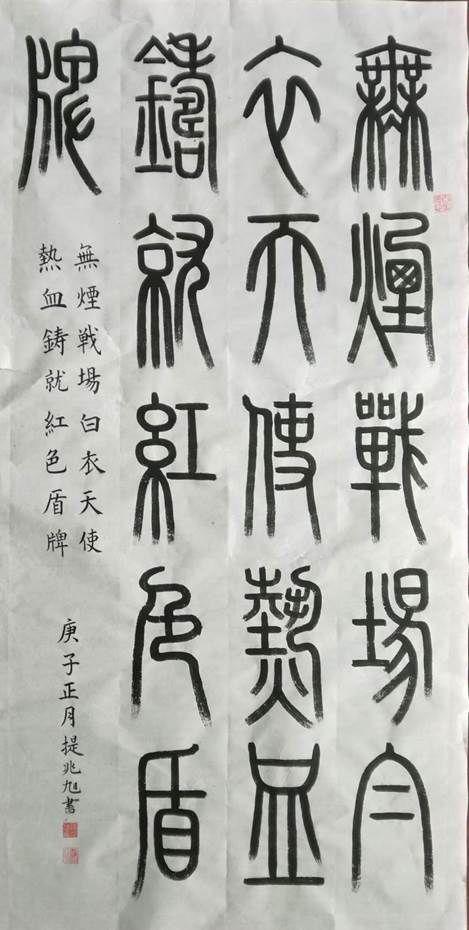 無煙戰場白
衣天使熱血
鑄就紅色盾
牌
無煙戦場白衣天使
熱血鋳就紅色盾牌
庚子正月提兆旭書